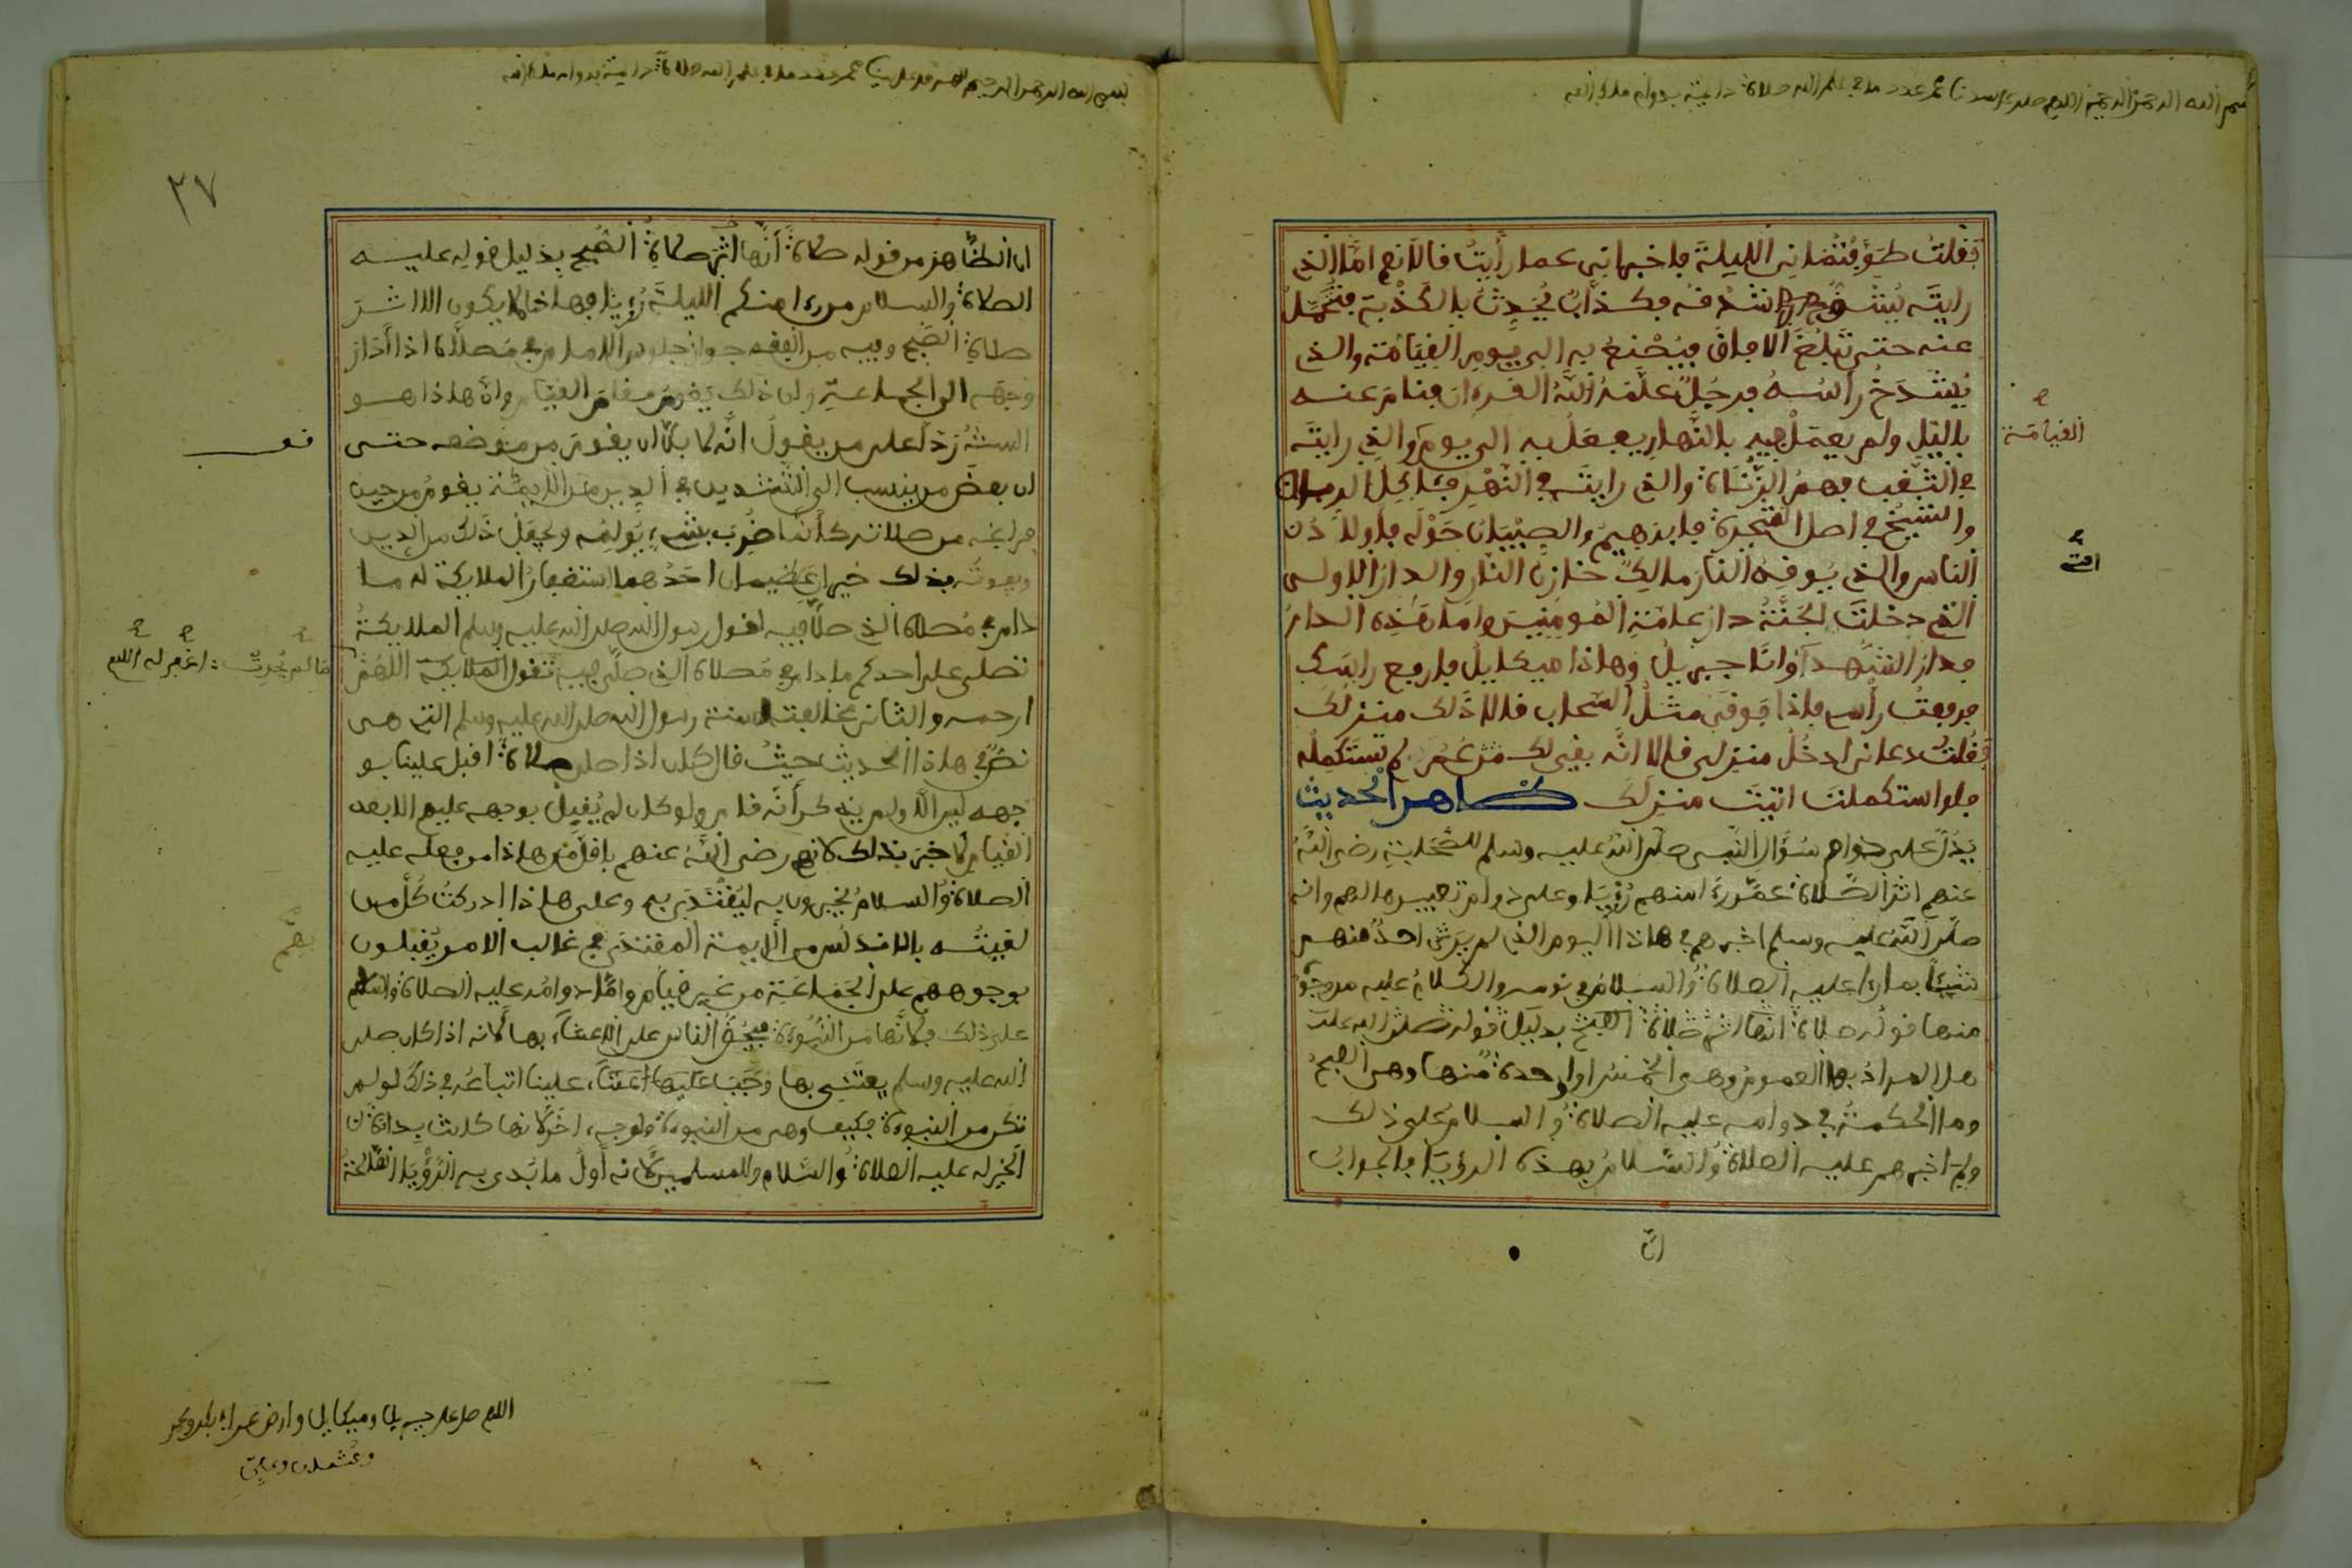 بسم الله الرحمن الرحيم اللهم صل على سيدنا محمد عدد ما في علم الله صلاة دائمة بدوام ملك الله
فقلت طوفتماني الليلة فاخبراني عما رأيت فالا نعم اما الذي
رايته يشق شدفه فكذاب يحدث بالكذبة فتحمل
عنه حتى تبلغ الافاق فيصنع به الى يوم القيامة والذي
يشدخ رأسه فرجل علمه الله القرءان فنام عنه
بالليل ولم يعمل فيه بالنهار يفعل به الى يوم والذي رايته
القيامة
في الثقب فهم الزناة والذي رايته في النهر ءاكل الربا
والشيخ في اصل الشجرة فابرهيم والصبيان حوله فاولاد
الناس والذي يوقد النار مالك خازن النار والدار الاولى
التي دخلت الجنة دار عامة المومنين واما هذه الدار
فدار الشهداء وانا جبريل وهاذا ميكاييل فارفع راسك
فرفعت رأسي فاذا فوقي مثل السحاب فالا ذلك منزلك
فقلت دعاني ادخل منزلي فالا انه بقي لك عمر لم تستكمله
فلو استكملت اتيت منزلك ظاهر الحديث
يدل على دوام سؤال النبي صلى الله عليه وسلم للصحابة رضي الله
عنهم اثر الصلاة عمن رءا منهم رؤيا وعلى دوام تعبيرها لهم وانه
صلى الله عليه وسلم اخبرهم في هاذا اليوم الذي لم ير احد منهم
شيئا بما رءا عليه الصلاة والسلام في نومه والكلام عليه من وجوه
منها قوله صلاة انها اثر صلاة الصبح بدليل قوله صلى الله عليه
هل المراد بها العموم وهي الخمس او واحدة منها وهي الصبح
وما الحكمة في دوامه عليه الصلاة والسلام على ذلك
ولم اخبرهم عليه الصلاة والسلام بهذه الرؤيا فالجواب
ان
بسم الله الرحمن الرحيم اللهم صل على سيدنا محمد عدد ما في علم الله صلاة دائمة بدوام ملك الله
٣٧
ان الظاهر من قوله صلاة انها اثر صلاة الصبح بدليل قوله عليه
الصلاة والسلام من رءا منكم الليلة رؤيا فهاذا لا يكون الا اثر
صلاة الصبح وفيه من الفقه جواز جلوس الامام في مصلاه اذا ادار
وجهه الى الجماعة وان ذلك يقوم مقام القيام وان هاذا هو
السنة ردا على من يقول انه لا بد ان يقوم من موضعه حتى
ان بعض من ينسب الى التشديد في الدين من الايمة يقوم من حين
فراغه من صلاته كأنما ضرب بشيء يولمه ويجعل ذلك من الدين
ويفوته بذلك خيران عظيمان احدهما استغفار الملايكة له ما
دام في مصلاه الذي صلا فيه لقول رسول الله صلى الله عليه وسلم الملايكة
تصلي على احدكم ما دام في مصلاه الذي صلى فيه تقول الملايكة اللهم
ما لم يحدث : اغفر له اللهم
ارحمه والثاني مخالفته لسنة رسول الله صلى الله عليه وسلم التي هي
نص في هاذا الحديث حيث قال كان اذا صلى صلاة اقبل علينا بو
جهه ليس الا ولم يذكر أنه قام ولو كان لم يقبل بوجهه عليهم الا بعد
القيام لاخبر بذلك لانهم رضي الله عنهم باقل من هاذا من فعله عليه
الصلاة والسلام يخبرون به ليقتدى به وعلى هاذا ادركت كل من
لقيته بالاندلس من الايمة المقتدى في غالب الامر يقبلون
بهم
بوجوههم على الجماعة من غير قيام واما دوامه عليه الصلاة والسلام
على ذلك فلانها من النبوة فيحض الناس على الاعتناء بها لانه اذا كان صلى
الله عليه وسلم يعتني بها وجب علينا اتباعه في ذلك لو لم
تكن من النبوة فكيف وهي من النبوة ولوجه اخر لانها كانت بداة
الخير له عليه الصلاة والسلام وللمسلمين لانه أول ما بدي به الرؤيا الصالحة
اللهم صل على جبريل وميكايل وارض عن ابي بكر وعمر
وعثمان وعلي